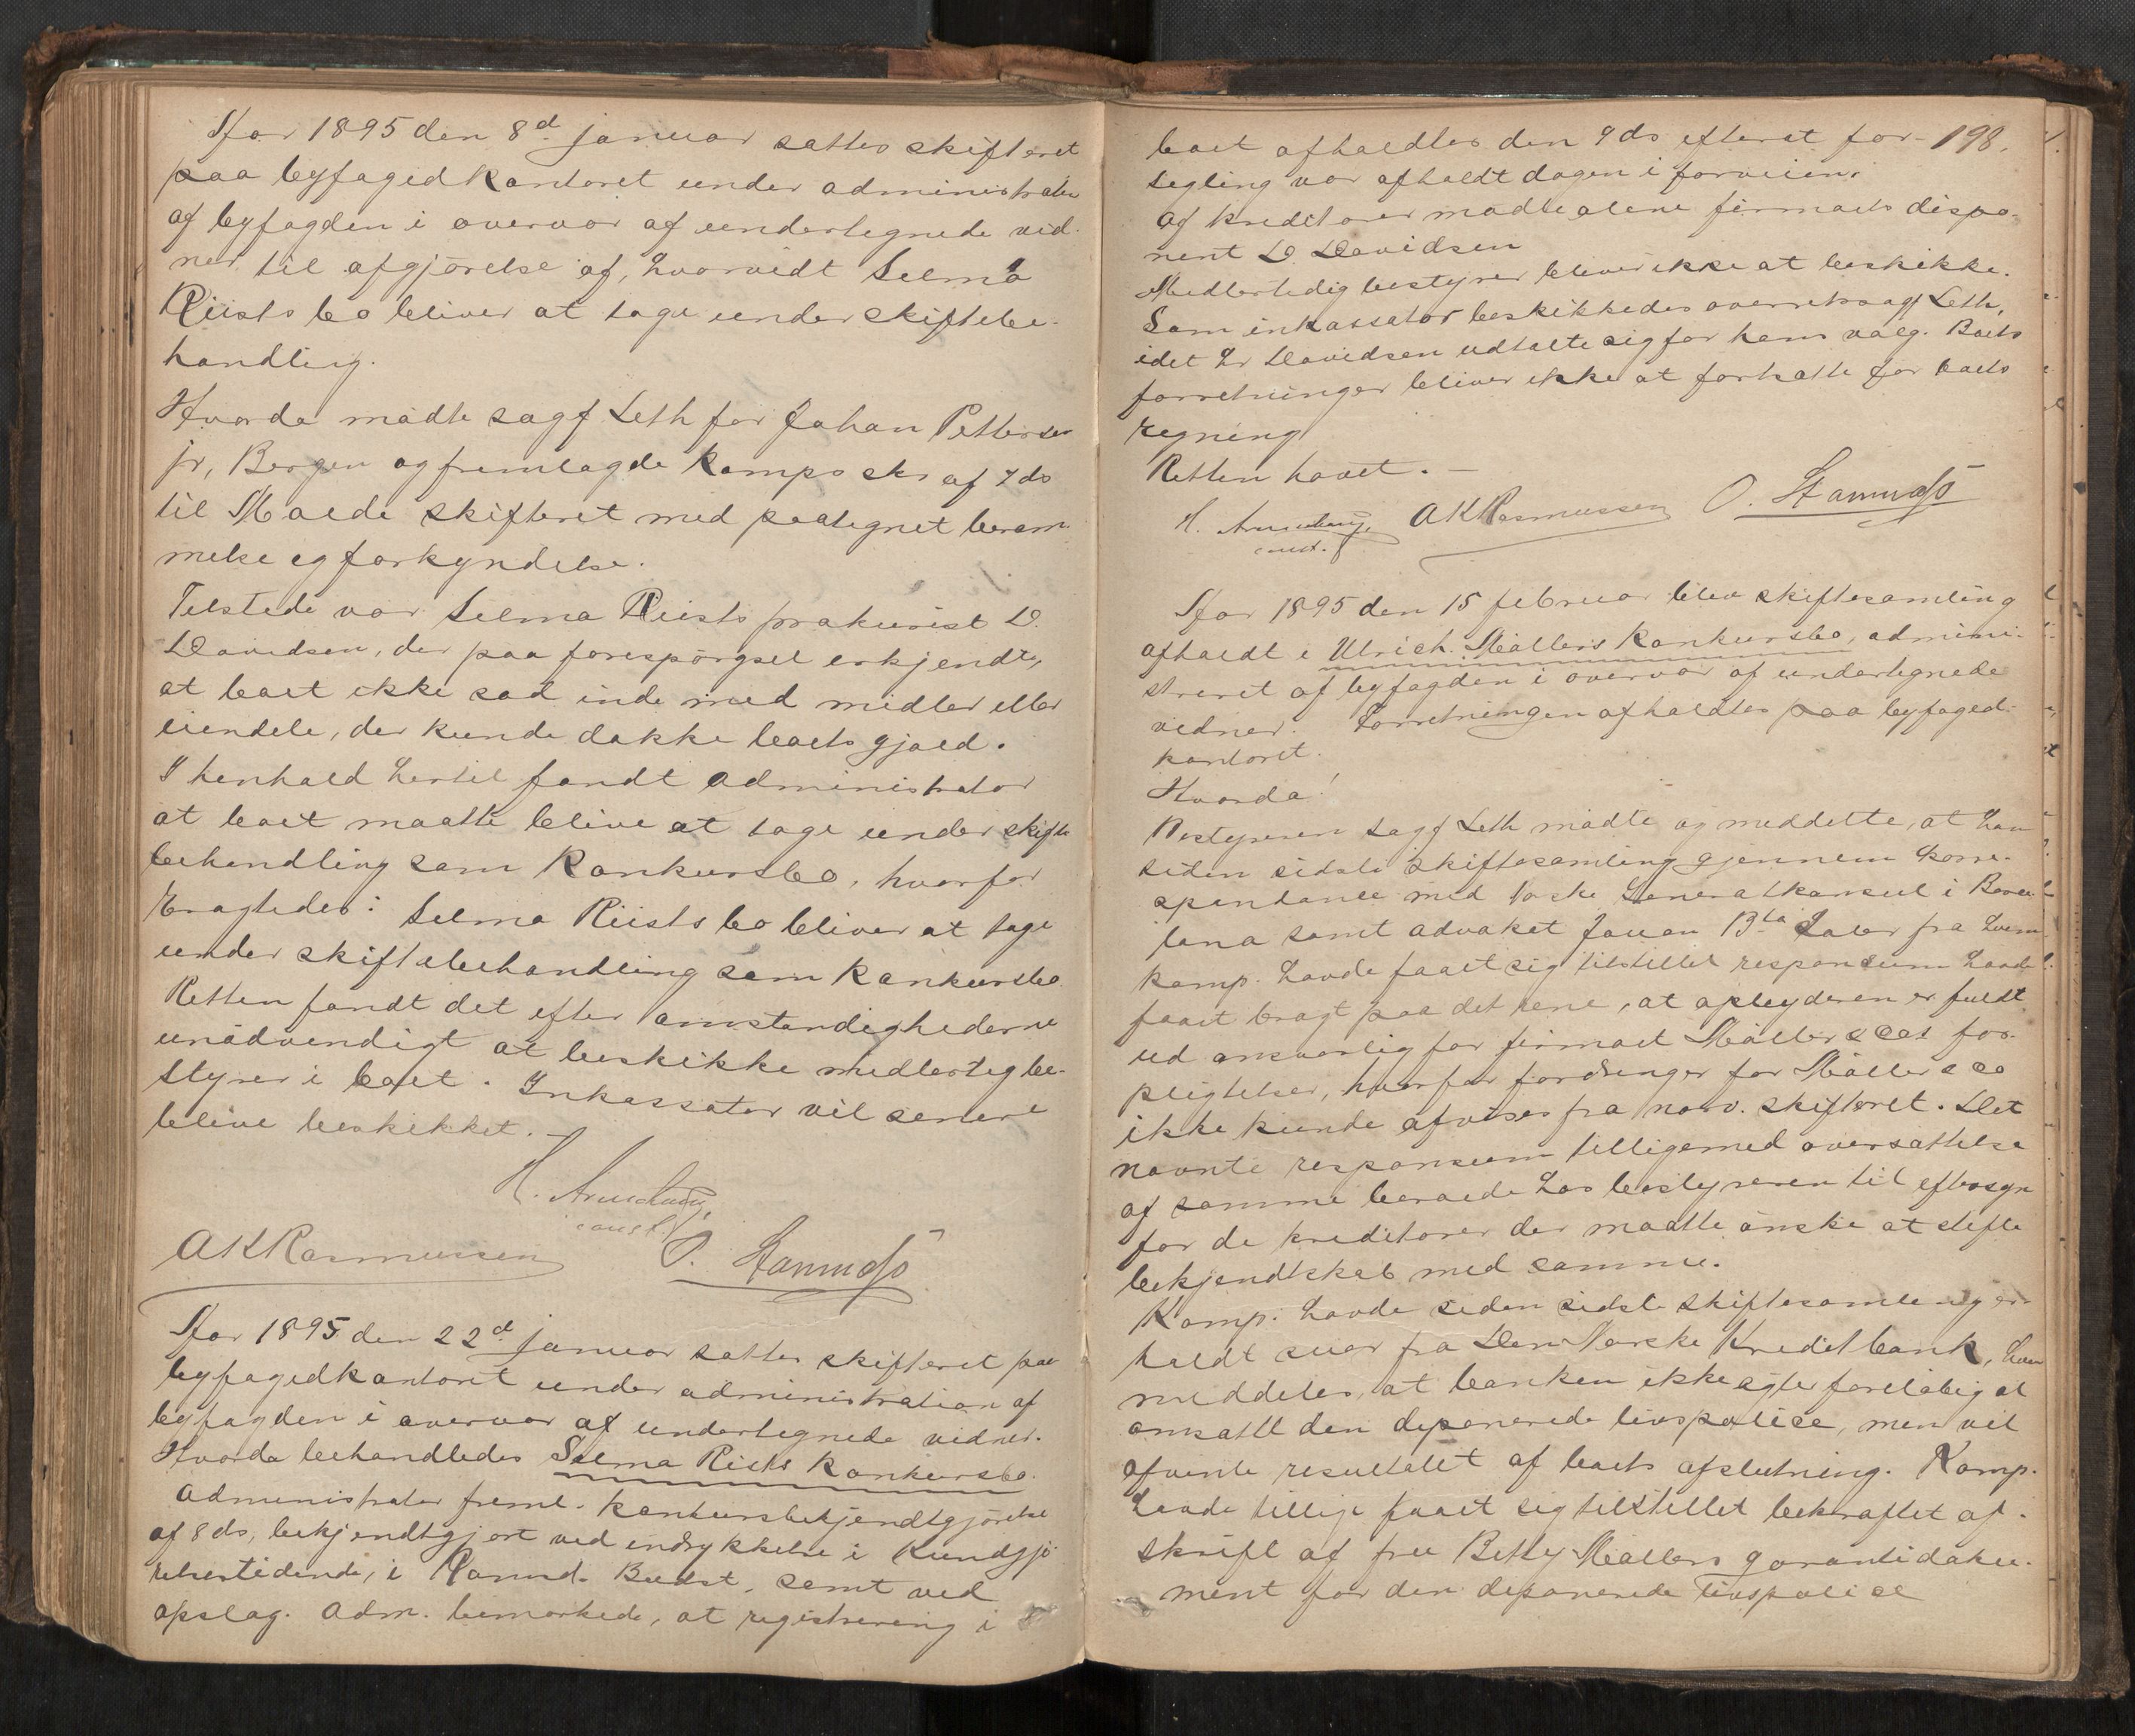 Aar 1895 den 8d januar sattes skifteret
paa byfogedkontoret under administration
af byfogden i overvær af undertegnede vid-
ner til afgjørelse af, hvorvidt Selma
Riists bo bliver at tage under skiftebe-
handling.
Hvorda mødte sagf Leth for Johan Petterson
jr, Bergen og fremlagde Komps skr af 7 ds
til Molde skifteret med paategnet beram-
melse og forkyndelse.
Tilstede var Selma Riists prokurist D.
Davidsen, der paa forespørgsel erkjendte,
at boet ikke sad inde med midler eller
eiendele, der kunde dække boets gjæld.
I henhold hertil fandt administrator
at boet maatte blive at tage under skifte
behandling som Konkursbo, hvorfor
Eragtedes: Selma Riists bo bliver at tage
under skiftebehandling som Konkursbo.
Retten fandt det efter omstændighederne
unødvendigt at beskikke midlertig be-
styrer i boet. Inkassator vil senere
blive beskikket. —
H.
const.
AKRasmussen O.
Aar 1895 den 22d januar sattes skifteret paa
byfogedkontoret under administration af
byfogden i overvær af undertegnede vidner.
Hvorda behandledes Selma Riists Konkursbo.
Administrator freml. konkursbekjendtgjørelse
af 8 ds, bekjendtgjort ved indrykkelse i Kundgjø
relsestidende, i Romsd. Budst. samt ved
opslag. Adm. bemærkede, at registrering i
boet afholdtes den 9 ds efterat for- 198.
segling var afholdt dagen i forveien.
Af kreditorer mødte alene firmaets dispo-
nent D. Davidsen
Midlertidig bestyrer bliver ikke at beskikke.
Som inkassator beskikkedes overretssagf Leth,
idet Hr Davidsen udtalte sig for hans valg. Boets
forretninger bliver ikke at fortsætte for boets
regning
Retten hævet. —
H. AKRasmussen O.
const.
Aar 1895 den 15 februar blev skiftesamling
afholdt i Ulrich Møllers Konkursbo, admini-
streret af byfogden i overvær af undertegnede
vidner. Forretningen afholdtes paa byfoged-
kontoret.
Hvorda!
Bestyreren sagf Leth mødte og meddelte, at han
siden sidste skiftesamling gjennem korre-
spondance med norske Generalkonsul i Barce
lona samt advokat Juan Bta fra hvem
komp. havde faaet sig tilstillet responsum havde
faaet bragt paa det rene, at opbyderen er fuldt
ud ansvarlig for firmaet Møller & Cos for-
pligtelser, hvorfor fordringer for Møller & Co
ikke kunde afvises fra norv. skifteret. Det
nævnte responsum tilligemed oversættelse
af samme beroede hos bestyreren til eftersyn
for de kreditorer der maatte ønske at stifte
bekjendtskab med samme.
Komp. havde siden sidste skiftesamling er-
holdt svar fra Den Norske Kreditbank, hvori
meddeles, at banken ikke agter foreløbig at
omsætte den deponerede livspolice, men vil
afvente resultatet af boets afslutning. Komp.
havde tillige faaet sig tilstillet bekræftet af-
skrift af fru Betty Møllers garantidoku-
ment for den deponerede livspolice